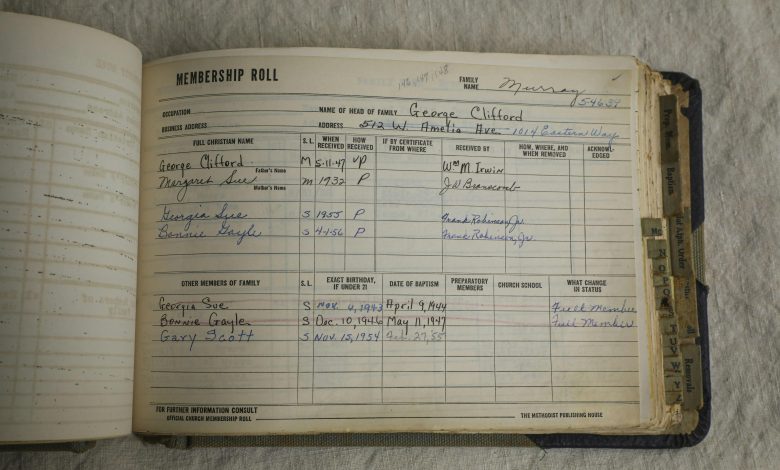 MEMBERSHIP ROLL
FAMILY NAME Murray
OCCUPATION NAME OF HEAD OF FAMILY George Clifford
BUSINESS ADDRESS ADDRESS 512 W. Amelia Ave. 1014 Eastern Way
FULL CHRISTIAN NAME S. L. WHEN RECEIVED HOW RECEIVED IF BY CERTIFICATE FROM WHERE RECEIVED BY HOW, WHERE, AND WHEN REMOVED ACKNOWLEDGED
George Clifford M 5-11-47 VP Wm M Irwin
Father's Name
Margaret Sue M 1932 P J W Branscomb
Mother's Name
Georgia Sue S 1955 P Frank Robinson, Jr.
Bonnie Gayle S 4-1-56 P Frank Robinson, Jr.
OTHER MEMBERS OF FAMILY S. L. EXACT BIRTHDAY, IF UNDER 21 DATE OF BAPTISM PREPARATORY MEMBERS CHURCH SCHOOL WHAT CHANGE IN STATUS
Georgia Sue S Nov. 4, 1943 April 9, 1944 Full Member
Bonnie Gayle S Dec. 10, 1946 May 11, 1947 Full Member
Gary Scott S Nov. 15, 1954 Feb. 27, 55
FOR FURTHER INFORMATION CONSULT
OFFICIAL CHURCH MEMBERSHIP ROLL THE METHODIST PUBLISHING HOUSE
Prep. Mem.
Baptism
Alph. Order
Removals
Mc
N
O
P
Q
R
T
U
V
W
Y
Z